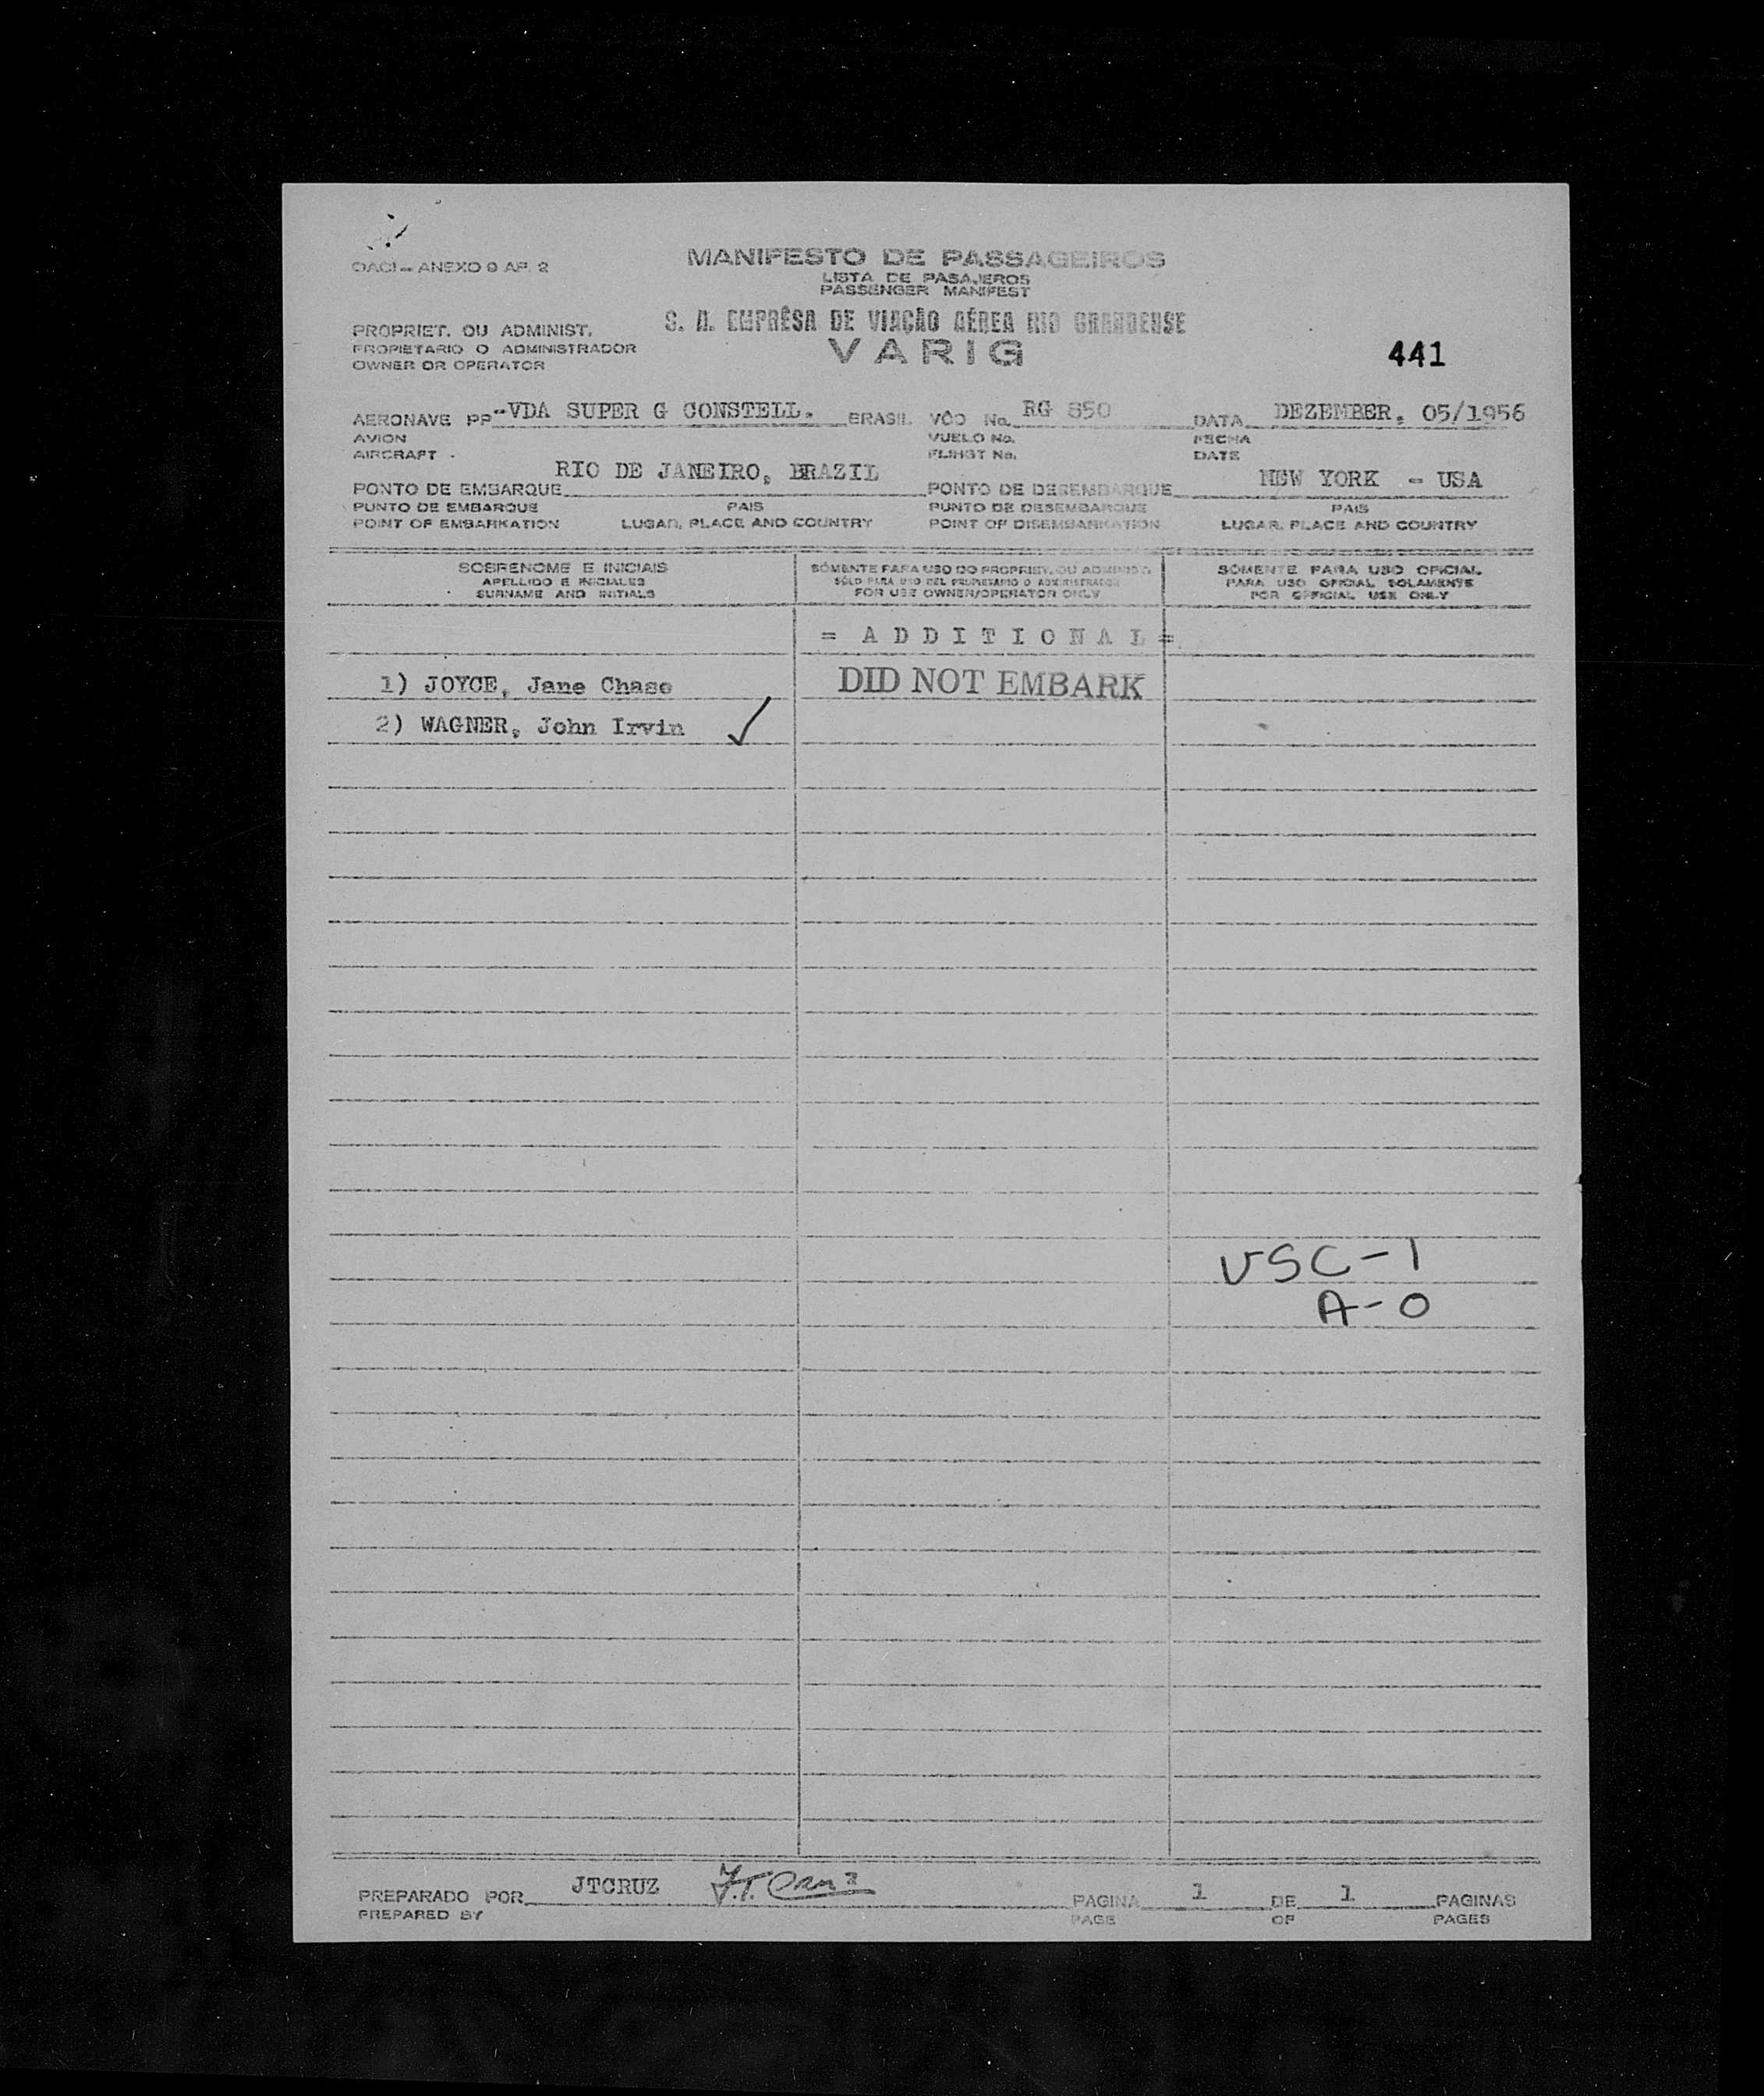 OACI - ANEXO 9 AP. 2
MANIFESTO DE PASSAGEIROS
LISTA DE PASAJEROS
PASSENGER MANIFEST
PROPRIET. OU ADMINIST.
PROPIETARIO O ADMINISTRADOR
OWNER OR OPERATOR
S. A. EMPRÊSA DE VIAÇÃO AÉREA RIO GRANDENSE
VARIG
441
AERONAVE PP-VDA SUPER G CONSTELL. BRASIL VÔO No. RG 850 DATA DEZEMBER, 05/1956
AVION VUELO No. FECHA
AIRCRAFT FLIHGT No. DATE
PONTO DE EMBARQUE RIO DE JANEIRO, BRAZIL PONTO DE DESEMBARQUE NEW YORK - USA
PUNTO DE EMBARQUE PAIS PUNTO DE DESEMBARQUE PAIS
POINT OF EMBARKATION LUGAR, PLACE AND COUNTRY POINT OF DISEMBARKATION LUGAR, PLACE AND COUNTRY
SOBRENOME E INICIAIS
APELLIDO E INICIALES
SURNAME AND INITIALS
SÓMENTE PARA USO DO PROPRIET. OU ADMINIS
SÓLO PARA USO DEL PROPIETARIO O ADMINISTRADOR
FOR USE OWNER/OPERATOR ONLY
SÓMENTE PARA USO OFICIAL
PARA USO OFICIAL SOLAMENTE
FOR OFFICIAL USE ONLY
= A D D I T I O N A L =
1) JOYCE, Jane Chase DID NOT EMBARK
2) WAGNER, John Irvin ✓
USC-1
A-0
PREPARADO POR JTCRUZ J.T. Cruz PAGINA 1 DE 1 PAGINAS
PREPARED BY PAGE OF PAGES